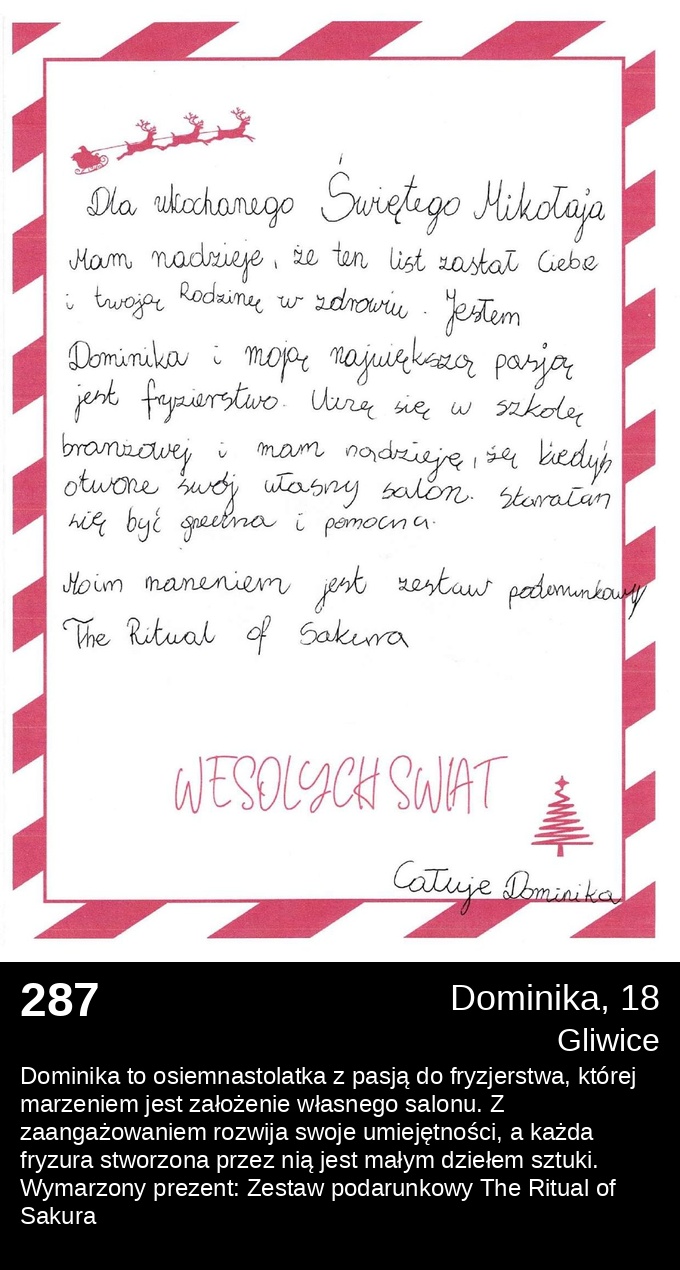 Dla ukochanego Świętego Mikołaja
Mam nadzieje, że ten list zastał Ciebe
i twoją Rodzinę w zdrowiu. Jestem
Dominika i moją największą pasją
jest fryzierstwo. Uczę się w szkolę
branżowej i mam nadzieję, żę kiedyś
otworze swój własny salon. Starałan
się być grzeczna i pomocna.
Moim marzeniem jest zestaw podarunkowy
The Ritual of Sakurra
WESOLYCH SWIAT
Całuje Dominika
287
Dominika, 18
Gliwice
Dominika to osiemnastolatka z pasją do fryzjerstwa, której
marzeniem jest założenie własnego salonu. Z
zaangażowaniem rozwija swoje umiejętności, a każda
fryzura stworzona przez nią jest małym dziełem sztuki.
Wymarzony prezent: Zestaw podarunkowy The Ritual of
Sakura